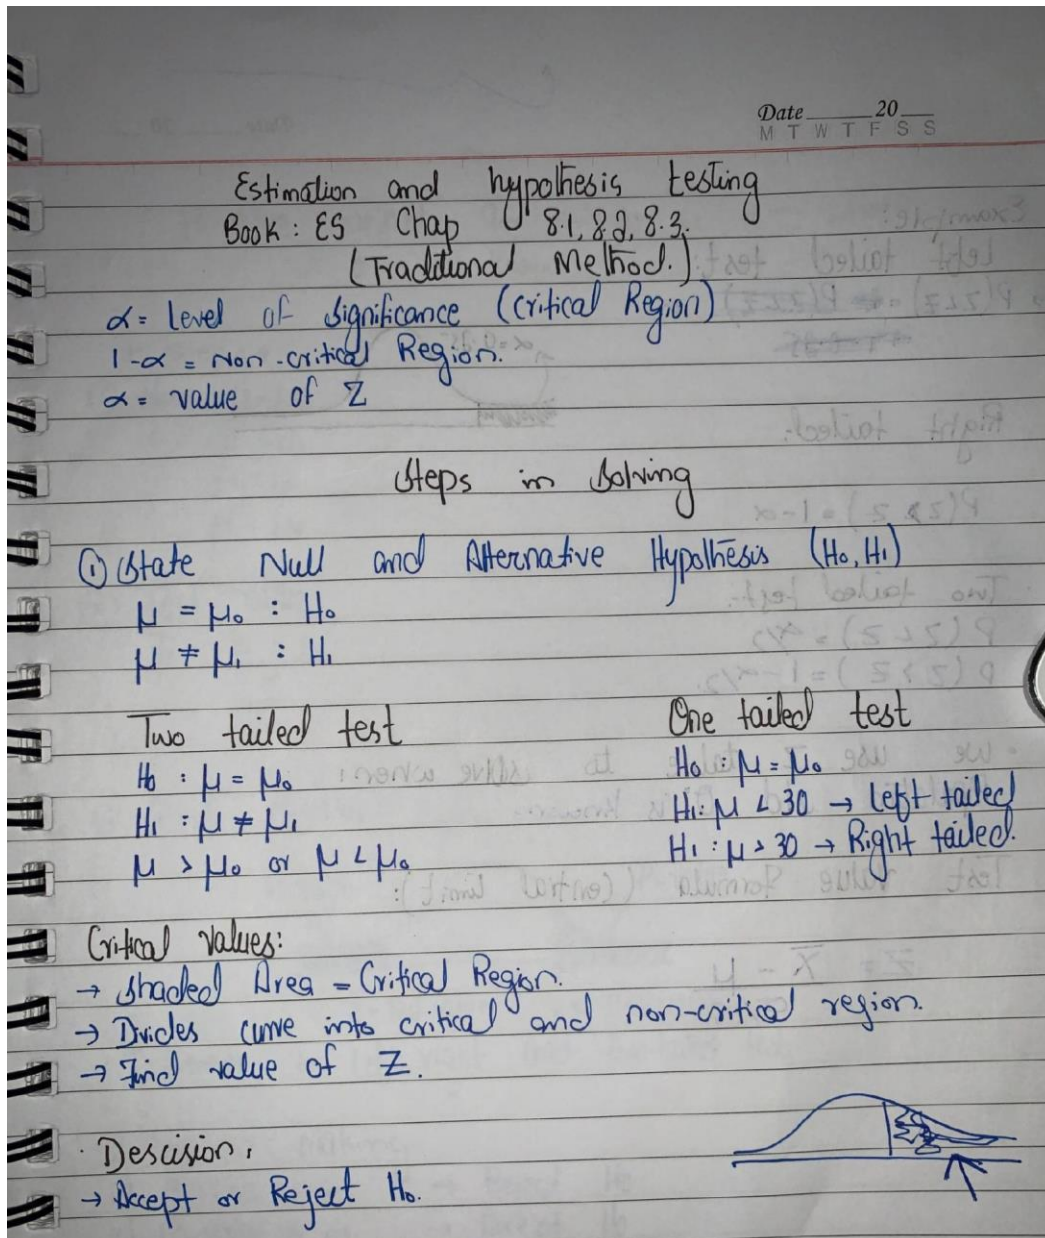 Date 20
M T W T F S S
Estimation and hypothesis testing
Book: ES Chap 8.1, 8.2, 8.3.
(Traditional Method.)
α = level of significance (Critical Region)
1-α = Non-critical Region.
α = value of Z
Steps in Solving
① State Null and Alternative Hypothesis (H₀, H₁)
μ = μ₀ : H₀
μ ≠ μ₁ : H₁
Two tailed test
H₀ : μ = μ₀
H₁ : μ ≠ μ₁
μ > μ₀ or μ < μ₀
One tailed test
H₀ : μ = μ₀
H₁ : μ < 30 → left tailed
H₁ : μ > 30 → Right tailed.
Critical values:
→ Shaded Area = Critical Region.
→ Divides curve into critical and non-critical region.
→ Find value of Z.
· Descision:
→ Accept or Reject H₀.